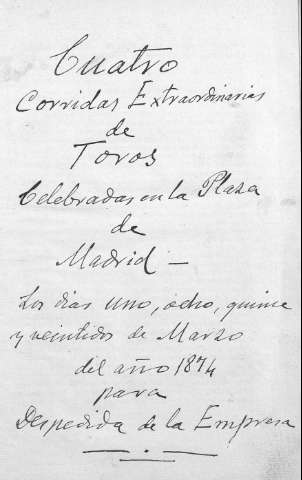 Cuatro
Corridas Extraordinarias
de
Toros
Celebradas en la Plaza
de
Madrid —
Los dias uno, ocho, quince
y veintidos de Marzo
del año 1874
para
Despedida de la Empresa